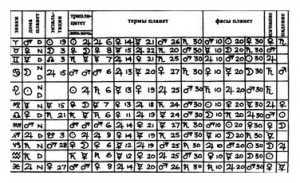 знаки дома планет экзальтация триплицитет термы планет фасы планет изгнание падение
♈ ♂ D ☉ 19 ☉ ♃ ♃ 6 ♀ 14 ☿ 21 ♂ 26 ♄ 30 ♂ 10 ☉ 20 ♀ 30 ♀ ♄
♉ ♀ N ☽ 3 ♀ ☽ ♀ 8 ☿ 15 ♃ 22 ♄ 26 ♂ 30 ☿ 10 ☽ 20 ♄ 30 ♂
♊ ☿ D ☊ 3 ♄ ☿ ☿ 7 ♃ 14 ♀ 21 ♄ 25 ♂ 30 ♃ 10 ♂ 20 ☉ 30 ♃
♋ ☽ N D ♃ 15 ♂ ♂ ♂ 6 ♃ 13 ☿ 20 ♀ 27 ♄ 30 ♀ 10 ☿ 20 ☽ 30 ♄ ♂
♌ ☉ N D ☉ ♃ ♄ 6 ☿ 13 ♀ 19 ♃ 25 ♂ 30 ♄ 10 ♃ 20 ♂ 30 ♄
♍ ☿ N ☿ 15 ♀ ☽ ☿ 7 ♀ 13 ♃ 18 ♄ 24 ♂ 30 ☉ 10 ♀ 20 ☿ 30 ♃ ♀
♎ ♀ D ♄ 21 ♄ ☿ ♄ 6 ♀ 11 ♃ 19 ☿ 24 ♂ 30 ☽ 10 ♄ 20 ♃ 30 ♂ ☉
♏ ♂ N ♂ ♂ ♂ 6 ♃ 14 ♀ 21 ☿ 27 ♄ 30 ♂ 10 ☉ 20 ♀ 30 ♀ ☽
♐ ♃ D ☋ 3 ☉ ♃ ♃ 8 ♀ 14 ☿ 19 ♄ 25 ♂ 30 ☿ 10 ☽ 20 ♄ 30 ☿
♑ ♄ N ♂ 28 ♀ ☽ ♀ 6 ☿ 12 ♃ 19 ♂ 25 ♄ 30 ♃ 10 ♂ 20 ☉ 30 ☽ ♃
♒ ♄ D ♄ ☿ ♄ 6 ☿ 12 ♀ 20 ♃ 25 ♂ 30 ♀ 10 ☿ 20 ☽ 30 ☉
♓ ♃ N ♀ 27 ♂ ♂ ♀ 8 ♃ 14 ☿ 20 ♂ 26 ♄ 30 ♄ 10 ♃ 20 ♂ 30 ☿ ☿